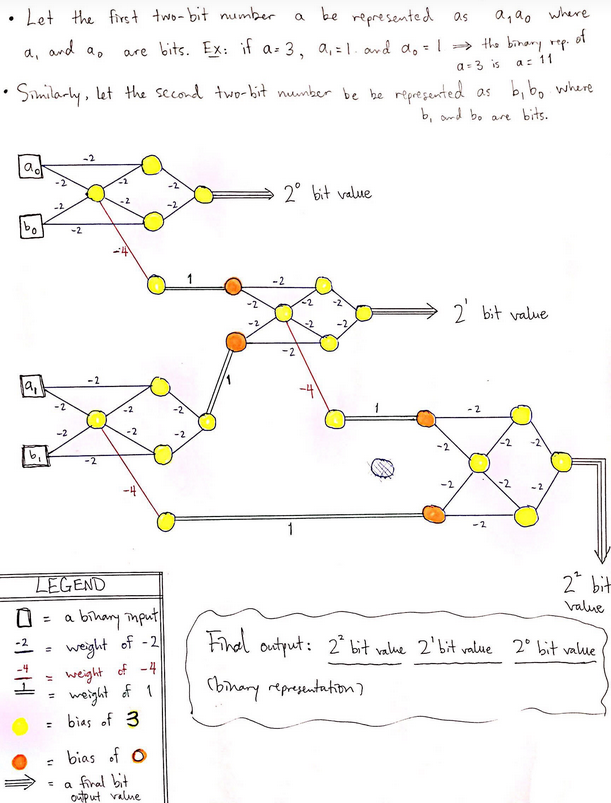 • Let the first two-bit number a be represented as a₁a₀ where
a₁ and a₀ are bits. Ex: if a=3, a₁=1 and a₀=1 ⇒ the binary rep. of
a=3 is a=11
• Similarly, let the second two-bit number be be represented as b₁b₀ where
b₁ and b₀ are bits.
a₀ -2
-2 -2 -2
-2 -2 -2 2⁰ bit value
b₀ -2
-4
1 -2
-2 -2 -2
2¹ bit value
-2 -2 -2
-2
a₁ -2 1
-2 -2 -2 -4 1 -2
-2 -2 -2 -2 -2 -2
b₁ -2
-4 -2 -2 -2
1 -2
2² bit
value
LEGEND
= a binary input
-2 = weight of -2
-4 = weight of -4
1 = weight of 1
= bias of 3
= bias of 0
⇒ = a final bit
output value
Final output: 2² bit value 2¹ bit value 2⁰ bit value
(binary representation)